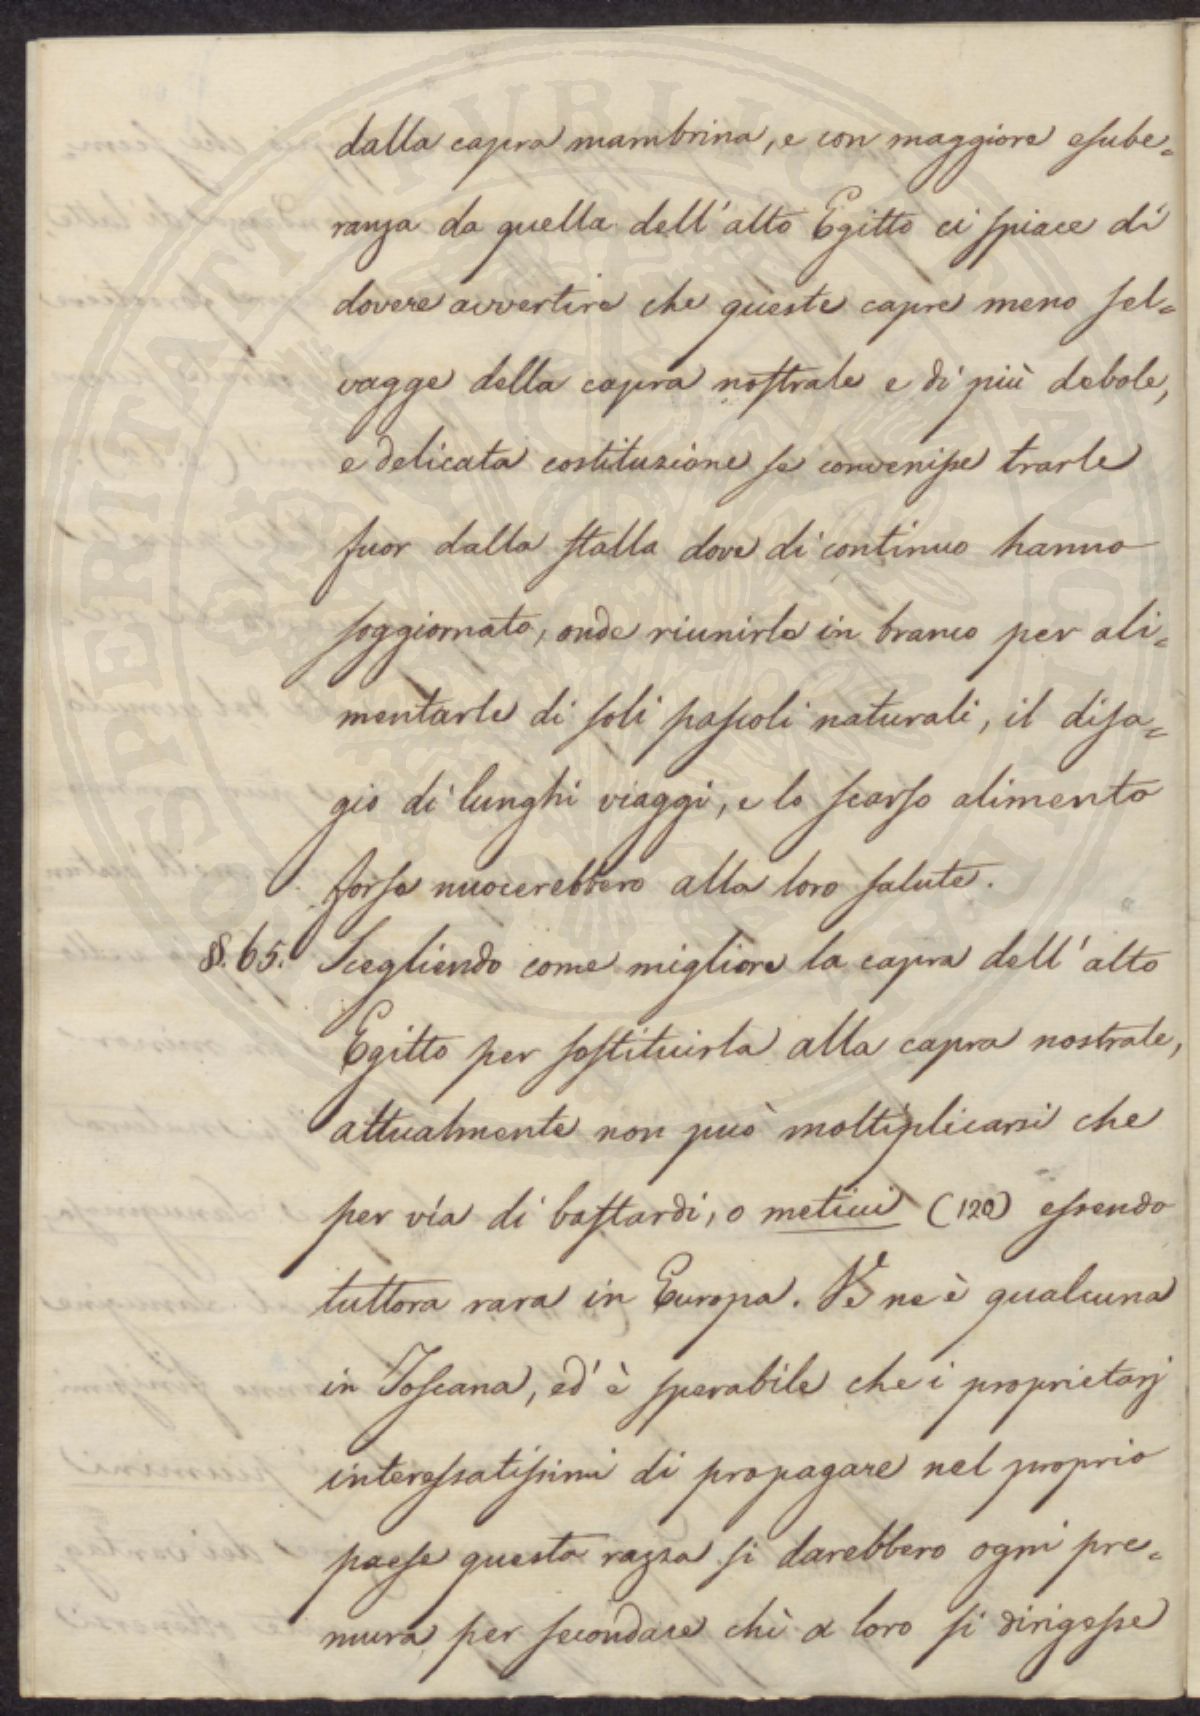 dalla capra mambrina, e con maggiore esube=
ranza da quella dell'alto Egitto ci spiace di
dovere avvertire che queste capre meno sel=
vagge della capra nostrale e di più debole,
e delicata costituzione se convenisse trarle
fuor dalla stalla dove di continuo hanno
soggiornato, onde riunirle in branco per ali=
mentarle di soli pascoli naturali, il disa=
gio di lunghi viaggi, e lo scarso alimento
forse nuocerebbero alla loro salute.
§. 65. Scegliendo come migliore la capra dell'alto
Egitto per sostituirla alla capra nostrale,
attualmente non può moltiplicarsi che
per via di bastardi, o meticci (120) essendo
tuttora rara in Europa. Ve ne è qualcuna
in Toscana, ed è sperabile che i proprietarj
interessatissimi di propagare nel proprio
paese questa razza si darebbero ogni pre=
mura per secondare chi a loro si dirigesse
PROSPERITATI PUBLICAE AUGENDAE